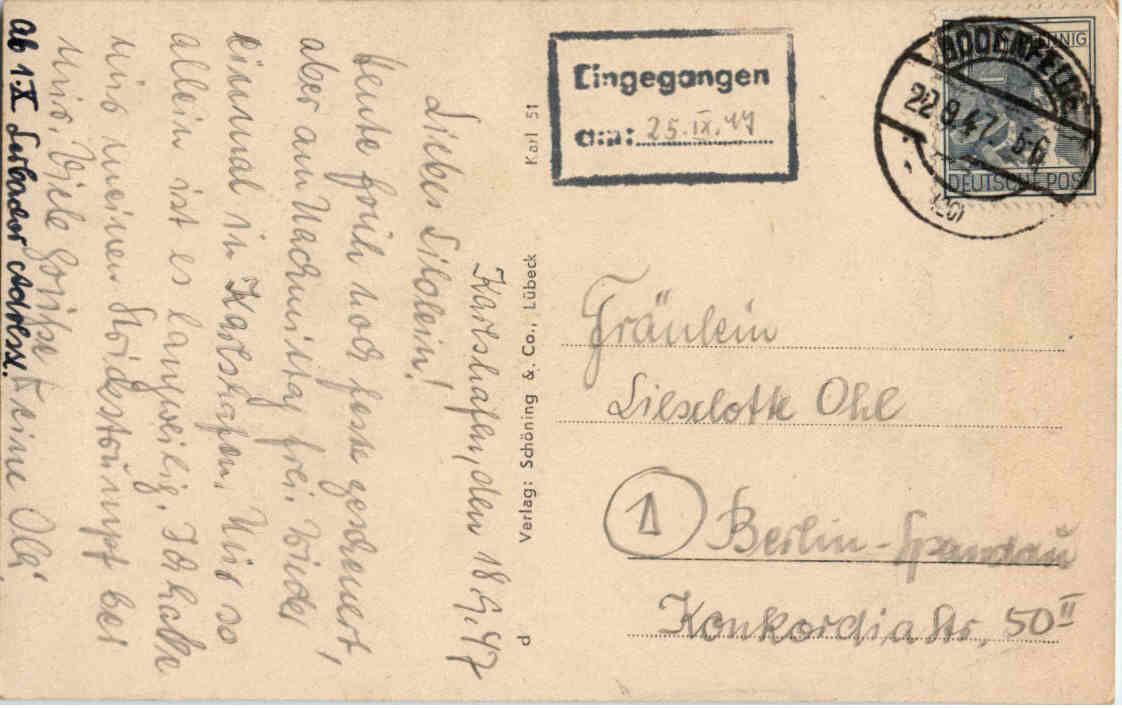 Karlshafen, den 18.9.47
Liebes Liloleinn!
Heute früh noch feste gescheuert,
aber am Nachmittag frei. Wieder
einmal in Karlshafen. Nur so
allein ist es langweilig. Ich habe
nur meinen Strickstrumpf bei
mir. Viele Grüße Deine Olli
ab 1.X Adresse.
Karl 51
Verlag: Schöning & Co., Lübeck
d
Eingegangen
am: 25.IX.47
BODENFELDE
22.9.47. 5-6
(20)
PFENNIG
DEUTSCHE POST
Fräulein
Lieselotte Ohl
1 Berlin-Spandau
Konkordiastr. 50 II